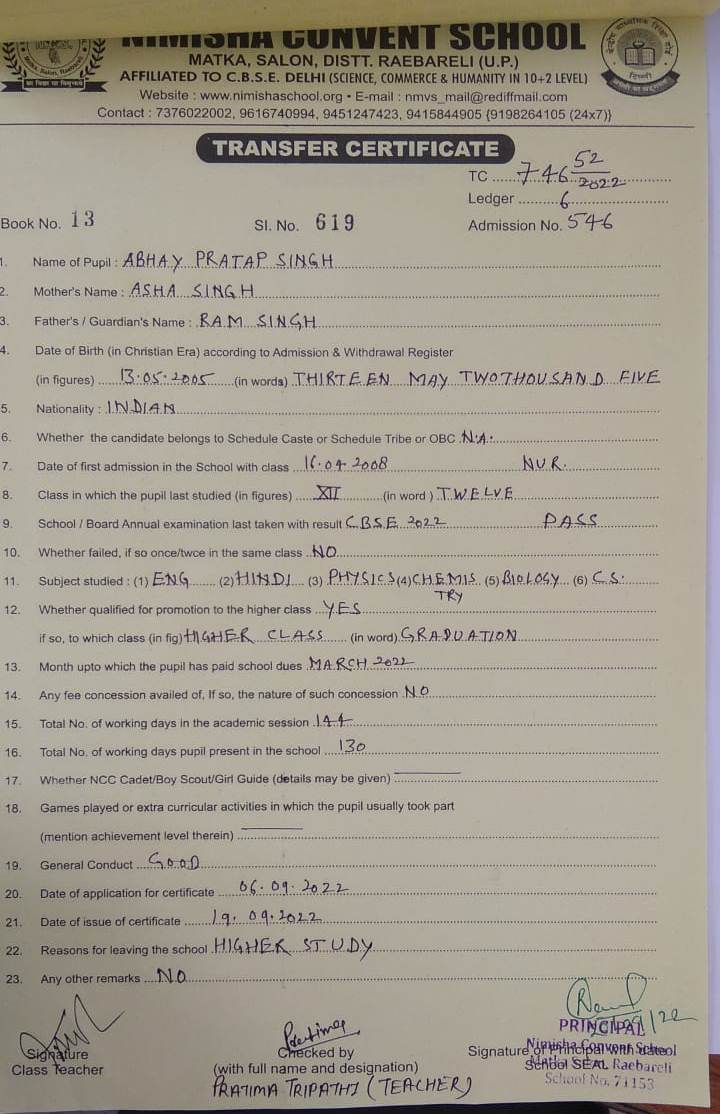 NIMISHA CONVENT SCHOOL
MATKA, SALON, DISTT. RAEBARELI (U.P.)
AFFILIATED TO C.B.S.E. DELHI (SCIENCE, COMMERCE & HUMANITY IN 10+2 LEVEL)
Website : www.nimishaschool.org • E-mail : nmvs_mail@rediffmail.com
Contact : 7376022002, 9616740994, 9451247423, 9415844905 {9198264105 (24x7)}
TRANSFER CERTIFICATE
TC 746 52/2022
Ledger 6
Book No. 13 Sl. No. 619 Admission No. 546
1. Name of Pupil : ABHAY PRATAP SINGH
2. Mother's Name : ASHA SINGH
3. Father's / Guardian's Name : RAM SINGH
4. Date of Birth (in Christian Era) according to Admission & Withdrawal Register
(in figures) 13.05.2005 (in words) THIRTEEN MAY TWOTHOUSAND FIVE
5. Nationality : INDIAN
6. Whether the candidate belongs to Schedule Caste or Schedule Tribe or OBC N.A.
7. Date of first admission in the School with class 16.04.2008 NUR.
8. Class in which the pupil last studied (in figures) XII (in word ) TWELVE
9. School / Board Annual examination last taken with result CBSE 2022 PASS
10. Whether failed, if so once/twce in the same class NO
11. Subject studied : (1) ENG (2) HINDI (3) PHYSICS (4) CHEMISTRY (5) BIOLOGY (6) C.S.
12. Whether qualified for promotion to the higher class YES
if so, to which class (in fig) HIGHER CLASS (in word) GRADUATION
13. Month upto which the pupil has paid school dues MARCH 2022
14. Any fee concession availed of, If so, the nature of such concession NO
15. Total No. of working days in the academic session 144
16. Total No. of working days pupil present in the school 130
17. Whether NCC Cadet/Boy Scout/Girl Guide (details may be given)
18. Games played or extra curricular activities in which the pupil usually took part
(mention achievement level therein)
19. General Conduct GOOD
20. Date of application for certificate 06.09.2022
21. Date of issue of certificate 19.09.2022
22. Reasons for leaving the school HIGHER STUDY
23. Any other remarks NO
PRINCIPAL
Nimisha Convent School
Raebareli
School No. 71153
Signature
Class Teacher
Pratima
Checked by
(with full name and designation)
PRATIMA TRIPATHI (TEACHER)
Signature of Principal with date
School SEAL